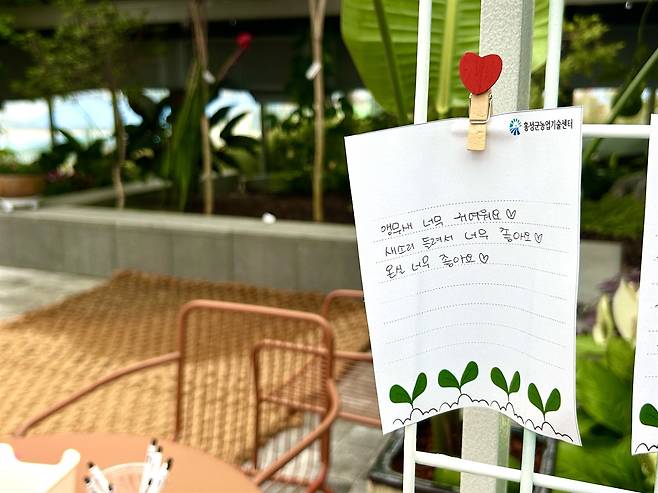 홍성군농업기술센터
앵무새 너무 귀여워요♡
새소리 들려서 너무 좋아요♡
온실 너무 좋아요♡